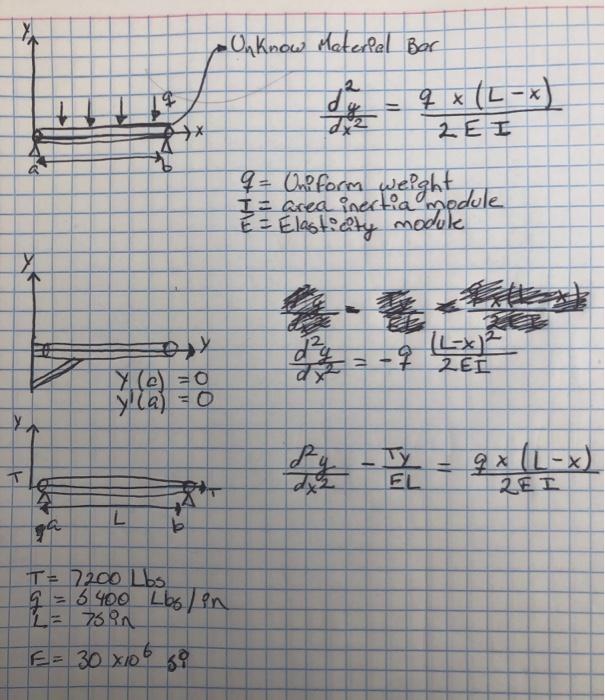 Y
UnKnow Material Bar
q
x
a
b
d²y/dx² = q x (L-x) / 2 E I
q = Uniform weight
I = area inertia module
E = Elasticity module
Y
Y
Y(a) = 0
Y'(a) = 0
d²y/dx² = -q (L-x)² / 2EI
Y
T
T
a
L
b
d²y/dx² - Ty/EL = q x (L-x) / 2EI
T = 7200 Lbs
L = 75 in
E = 30 x10⁶